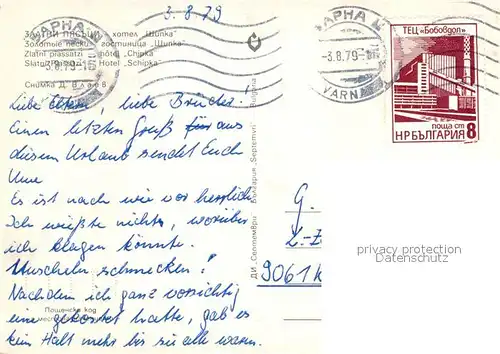 3.8.79
ВАРНА
ЗЛАТНИ ПЯСЪЦИ — хотел „Шипка"
Золотые пески — гостиница „Шипка"
Zlatni piassatzi — hôtel „Chipka"
Hotel „Schipka"
Снимка Д. Влаев
-3.8.79
VARNA
ТЕЦ „Бобовдол"
поща ст
НРБЪЛГАРИЯ 8
Liebe Eltern, liebe Brüder!
Einen letzten Gruß aus
diesem Urlaub sendet Euch
Uwe
Es ist nach wie vor herrlich.
Ich wüßte nichts, worüber
ich klagen könnte.
Muscheln schmecken!
Nachdem ich ganz vorsichtig
eine gekostet hatte, gab es
kein Halt mehr bis sie alle waren.
Пощенски код
ДИ „Септември"
България „Septemvri"
G.
L-Z
9061 k
privacy protection
Datenschutz